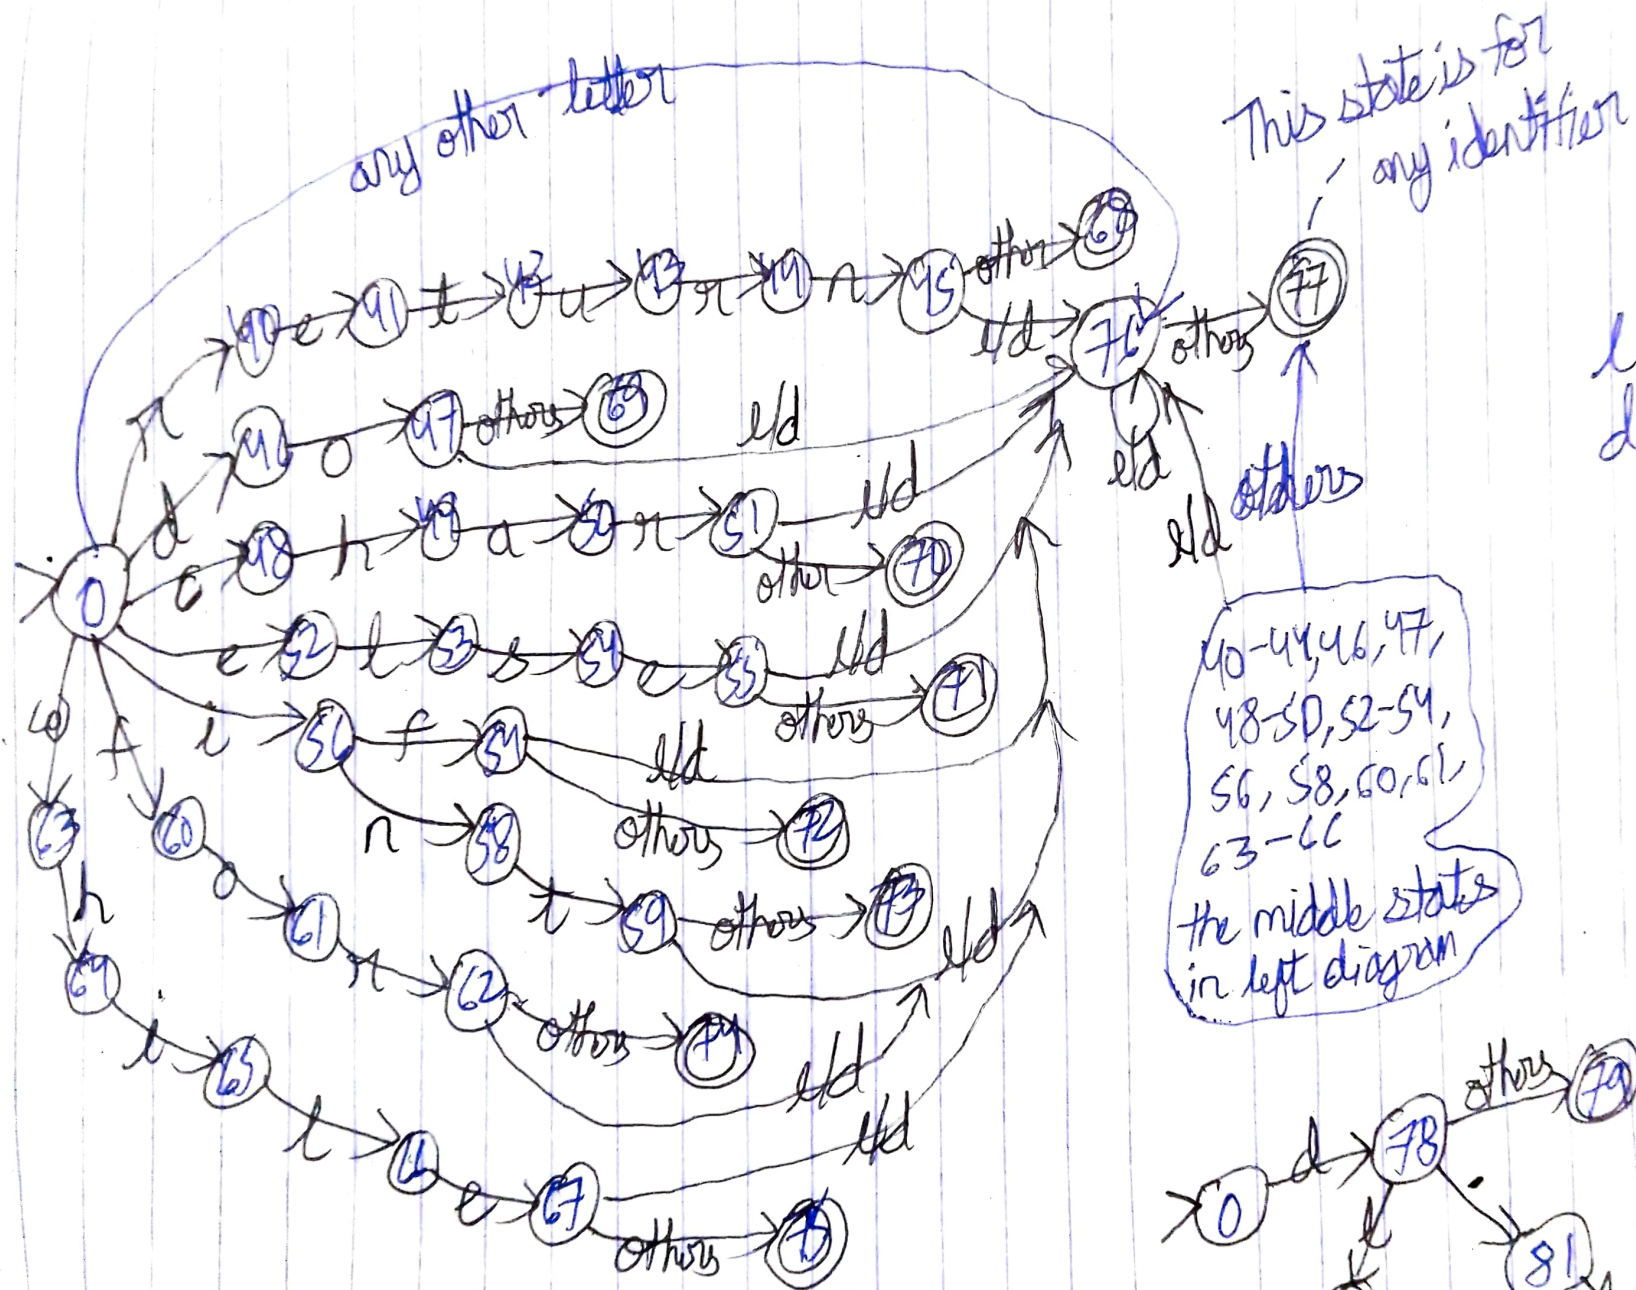 any other letter
This state is for
any identifier
r 40 e 41 t 42 u 43 r 44 n 45 other 68
l/d 76 others 77
d 46 o 47 others 69 l/d
l/d
others
l/d
c 48 h 49 a 50 r 51 l/d
other 70
0
e 52 l 53 s 54 e 55 l/d
others 71
i 56 f 57 l/d
others 72
n 58 t 59 others 73
l/d
f 60 o 61 r 62 others 74
l/d
w 63 h 64 i 65 l 66 e 67 l/d
others 75
40-44, 46, 47,
48-50, 52-54,
56, 58, 60, 61,
63-66
the middle states
in left diagram
l
d
0 d 78 others 79
l
. 81